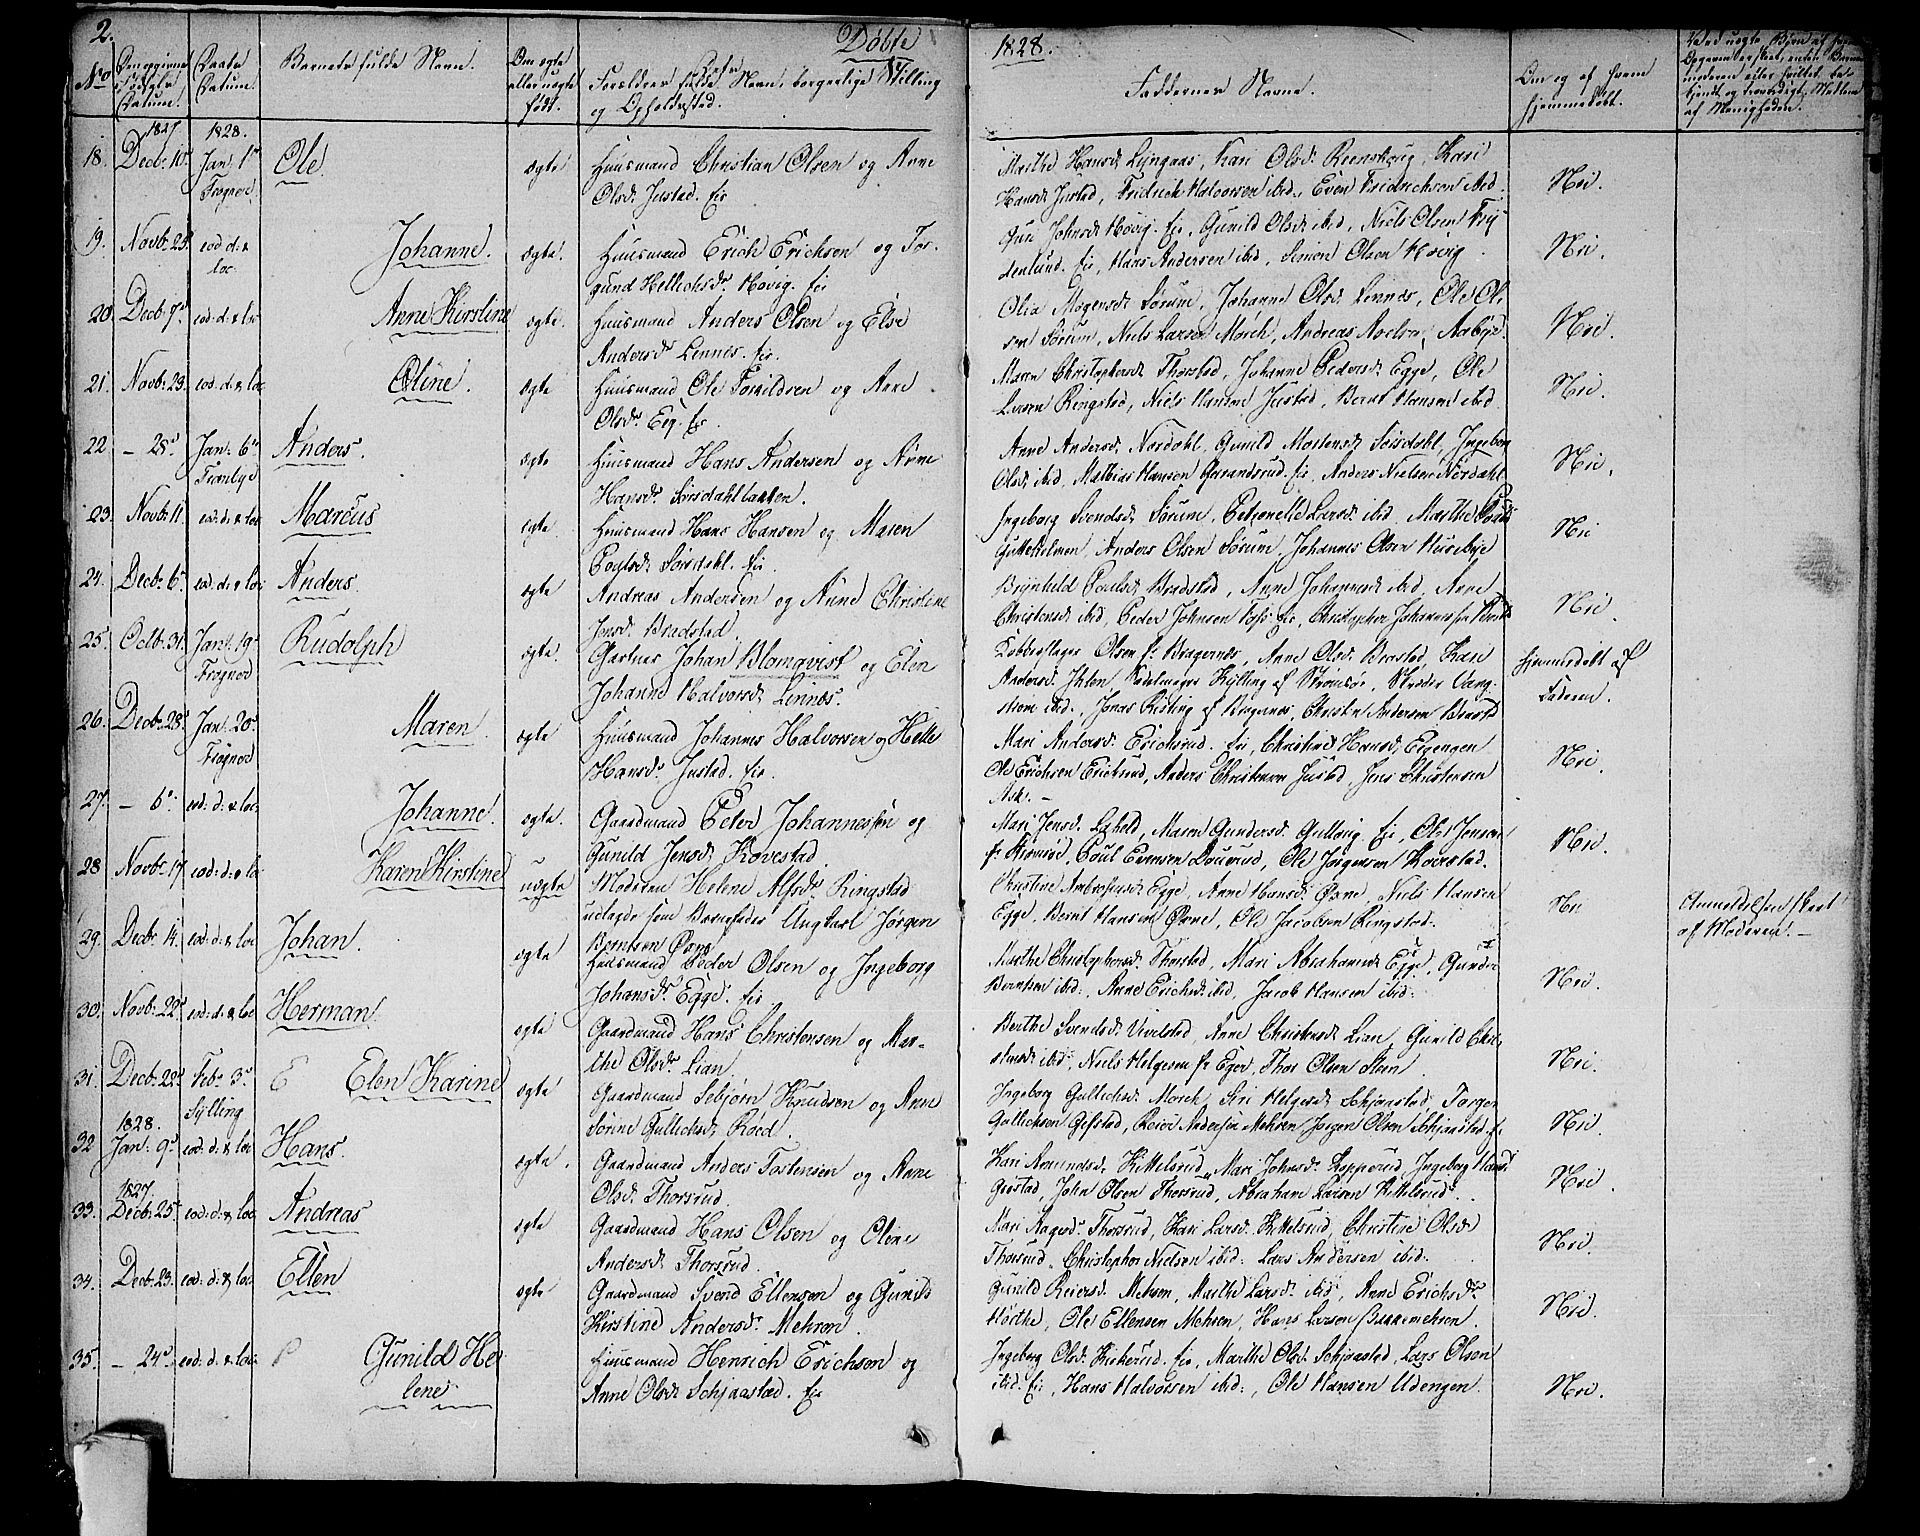 2.
Døbte
1828.
No
Barnets fulde Navn.
Om ægte eller uægte født.
Forældres fulde Navn, borgerlige Stilling og Opholdssted.
Faddernes Navne.
Om og af hvem hjemmedøbt.
18. 1827 Decb: 10. 1828. Jan: 1 Frogner. Ole. ægte Huusmand Christian Olsen og Anne
Olsd. Justad. Eie
Marthe Hansd. Lyngaas, Kari Olsd. Reenskoug, Kari
Hansd. Justad, Fridrich Halvorsen ibid., Even Fridrichsen ibid.
Nei.
19. Novb: eod. d: & loc. Johanne. ægte. Huusmand Erich Erichsen og Tor-
gund Hellichsd. Høvig. Eie
Guri Johnsd. Høvig. Eie, Gunild Olsd. ibid, Niels Olsen Fry-
denlund. Eie, Hans Andersen ibid, Simon Olsen Høvig.
Nei.
20. Decb: 7. eod: d: & loc Anne Kirstine ægte. Huusmand Anders Olsen og Else
Andersd. Lennes. Eie.
Olia Mogensd. Sørum, Johanne Olsd. Lennes, Ole Ol-
sen Sørum, Niels Larsen Mørch, Andreas
Nei.
21. Novb: 29. eod: d: & loc Oline. ægte Huusmand Ole og Anne
Olsd. Eie.
Maren Christophersd. Thorstad, Johanne Pedersd. Egge, Ole
Larsen Ringstad, Niels Hansen Justad, Bernt Hansen ibid.
Nei.
22 – 28. Jan: 6. Tranbye Anders. ægte Huusmand Hans Andersen og Anne
Hansd. Sørsdahl
Anne Andersd. Nordahl, Gunild Mortensd. Sørsdahl, Ingeborg
Olsd. ibid, Mathias Hansen Eie, Anders Nielsen Nordahl
Nei.
23. Novb: 11. eod: d: & loc Marcus ægte. Huusmand Hans Hansen og Maren
Poulsd. Sørsdahl. Eie.
Ingeborg Svendsd. Sørum, Petronelle Larsd. ibid. Marthe
Anders Olsen Sørum, Johannes Olsen Huseby
Nei
24. Decb: 6. eod: d: & loc Anders. ægte Andreas Andersen og Anne Christine
Jensd. Bradstad.
Brynhild Poulsd. Bradstad, Anne Johannesd. ibid, Anne
Christensd. ibid, Peder Johnsen Eie, Christopher Johannes
Nei.
25. Octb: 31. Jan: 19. Frogner Rudolph ægte. Gartner Johan Blomqvist og Elen
Johanne Halvorsd. Linnes.
Kobberslager Olsen fr Bragernes, Anne Olsd. Brastad, Kari
Andersd. Ihlen af Strømsøe,
ibid., Jonas Risting af Bragernes, Christen Andersen Brastad
hjemmedøbt af
Faderen.
26. Decb: 28. Jan: 20. Frogner Maren. ægte Huusmand Johannes Halvorsen og Helle
Hansd. Justad. Eie.
Mari Andersd. Erichsrud. Eie, Christine Hansd.
Ole Erichsen Erichsrud, Anders Christensen Justad, Jens Christensen
Ask. –
Nei.
27. – 6. eod: d: & loc. Johanne. ægte. Gaardmand Peter Johannessen og
Gunild Jensd. Kovestad.
Mari Jensd. Maren Gundersd. Gulloug Eie, Ole Jensen
fr Strømsøe, Poul Evensen Ole Jørgensen Kovestad.
Nei.
28 Novb: 17 eod: d: & loc Karen Kirstine uægte Moderen Helene Alfsd. Ringstad
udlagde som Barnefader Ungkarl Jørgen
Berntsen Øvne
Christine Ambrosiusd. Egge, Anne Hansd. Øvne, Niels Hansen
Egge, Bernt Hansen Øvne, Ole Jacobsen Ringstad.
Nei
Anmeldelsen skeet
af Moderen. –
29. Decb: 4. eod: d: & loc Johan. ægte Huusmand Peder Olsen og Ingeborg
Johansd. Egge. Eie
Marthe Christophersd. Thorstad, Mari Abrahamsd. Egge, Gunder
Berntsen ibid, Anne Erichsd. ibid, Jacob Hansen ibid.
Nei.
30. Novb: 22. eod: d: & loc Herman. ægte Gaardmand Hans Christensen og Mar-
the Olsd. Lian.
Berthe Svendsd. Anne Christensd. Lian, Gunild Chri-
stensd. ibid, Niels Helgesen fr Eger, Thor Olsen Steen.
Nei.
31. Decb: 22. Feb: 3. Sylling E Elen Karine ægte Gaardmand Sebjørn Knudsen og Anne
Sørine Gullichsd. Røed.
Ingeborg Gullichsd. Mørch, Siri Helgesd. Schjæstad, Torger
Gullichsen Gifstad, Reier Andersen Mehren, Jørgen Olsen Schjæstad. Eie
Nei.
32 1828. Jan: 9. eod: d: & loc Hans. ægte. Gaardmand Anders Tostensen og Anne
Olsd. Thorsrud
Kari Amundsd. Kittelsrud, Mari Johnsd. Ingeborg Hansd.
John Olsen Thorsrud, Abraham Larsen Kittelsrud.
Nei.
33. 1827. Decb: 25. eod: d: & loc. Andreas ægte Gaardmand Hans Olsen og Oline
Andersd. Thorsrud.
Mari Aagesd. Thorsrud, Kari Larsd. Kittelsrud, Christine Olsd.
Thorsrud, Christopher Nielsen ibid: Lars Andersen ibid:
Nei.
34. Decb: 23. eod: d: & loc Ellen ægte Gaardmand Svend Ellensen og Gunild
Kirstine Andersd. Mehren.
Gunild Reiersd. Mehren, Marthe Larsd. ibid, Anne Erichsd.
Hørthe, Ole Ellensen Mehren, Hans Larsen
Nei.
35. – 24. eod: d: & loc: P Gunild He
lene. Huusmand Henrich Erichsen og
Anne Olsd. Schjæstad. Eie
Ingeborg Olsd. Kirkerud. Eie, Marthe Olsd. Schjæstad, Lars Olsen
ibid. Eie, Hans Halvorsen ibid:, Ole Hansen Udengen.
Nei.